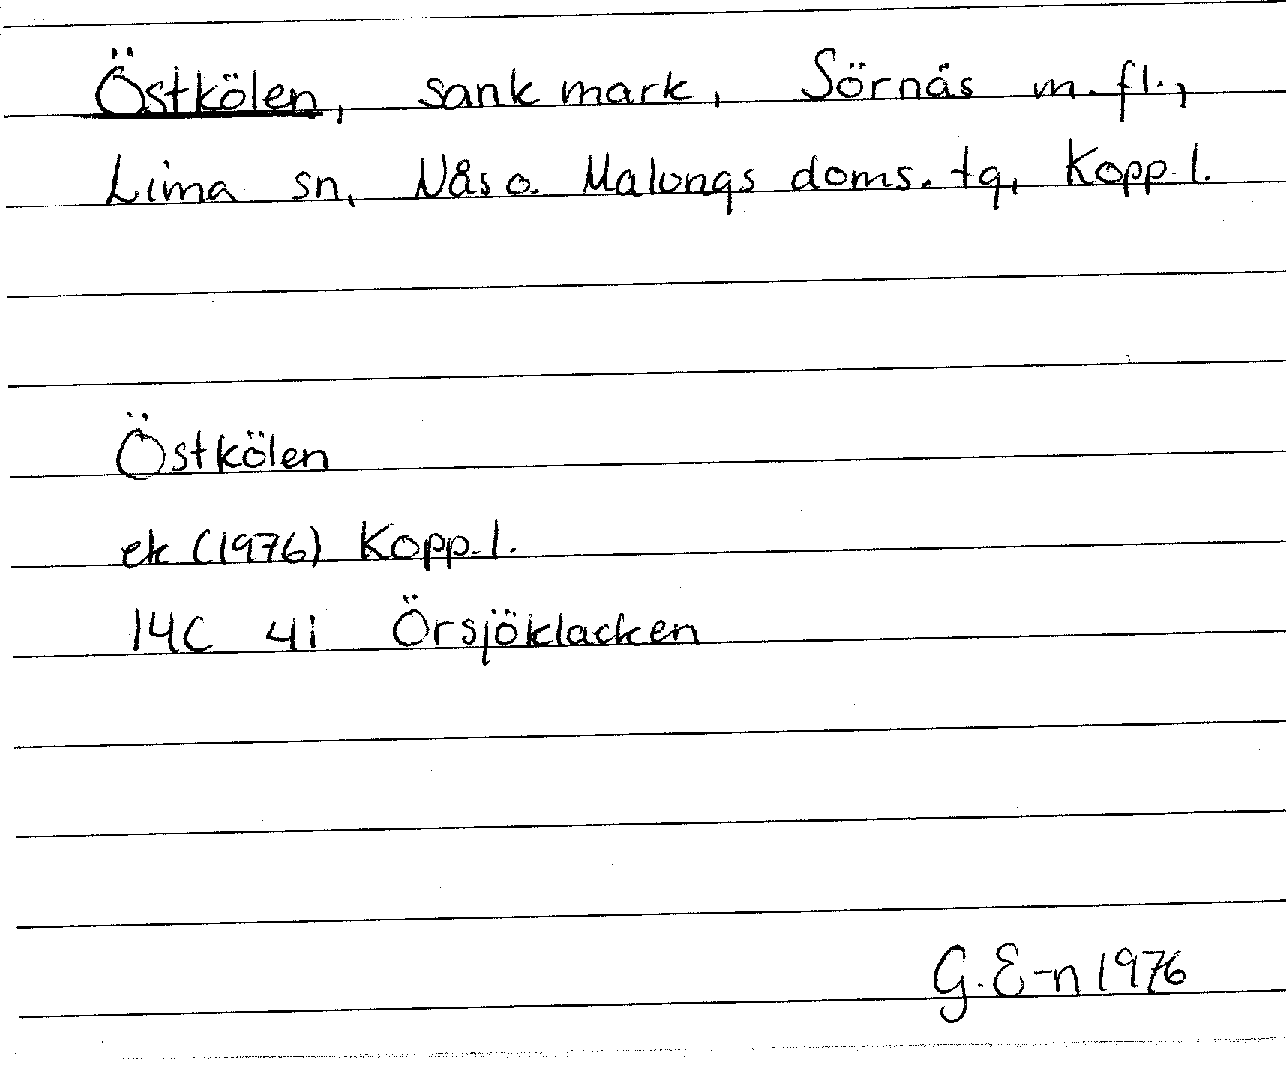 Östkölen, sank mark, Sörnäs m.fl.,
Lima sn, Nås o. Malungs doms. tg, Kopp.l.
Östkölen
ek (1976) Kopp.l.
14C 4i Örsjöklacken
G.E-n 1976